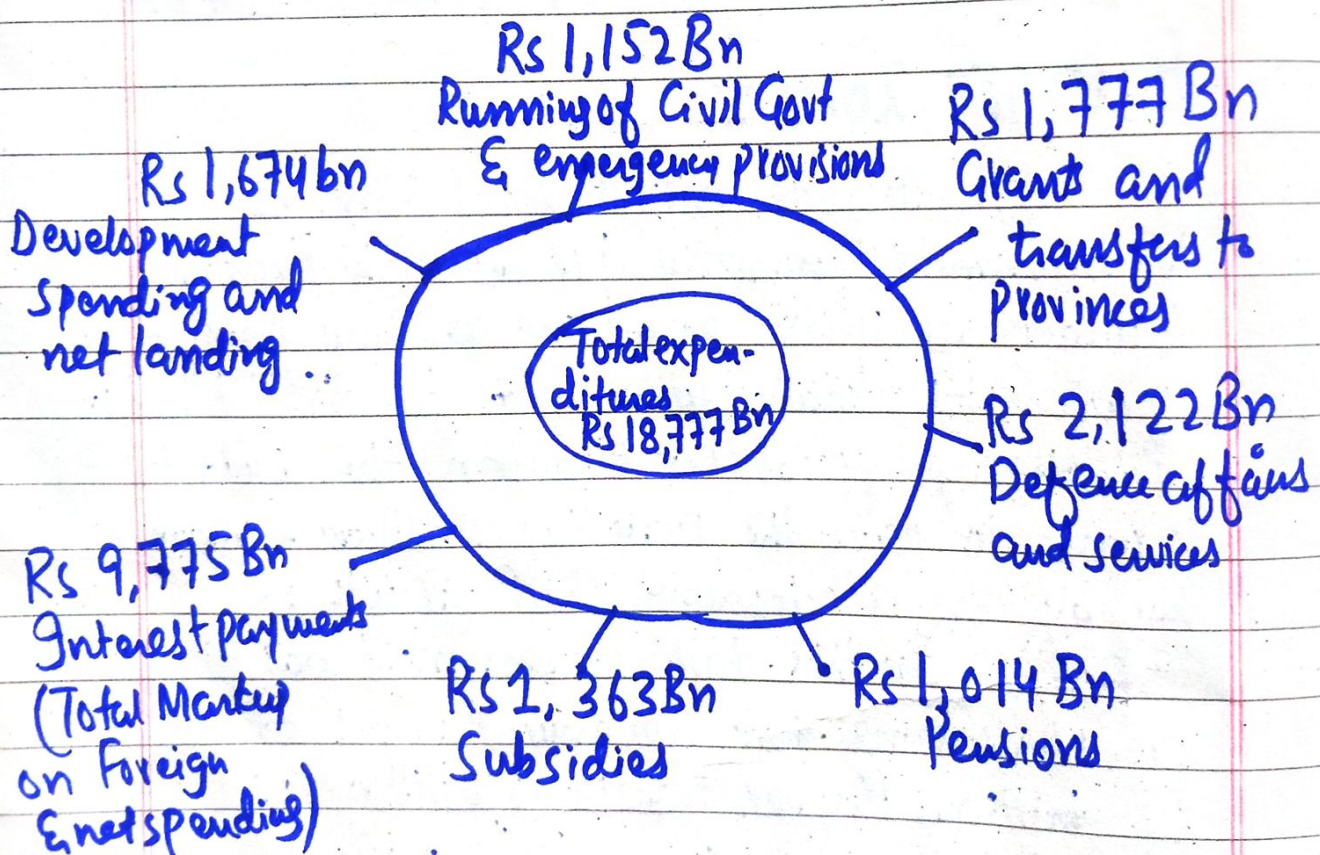 Rs 1,152 Bn
Running of Civil Govt
& emergency provisions
Rs 1,777 Bn
Grants and
transfers to
provinces
Rs 1,674 bn
Development
spending and
net landing
Total expen-
ditures
Rs 18,777 Bn
Rs 2,122 Bn
Defence affairs
and services
Rs 9,775 Bn
Interest payments
(Total Markup
on Foreign
& net spending)
Rs 1,363 Bn
Subsidies
Rs 1,014 Bn
Pensions